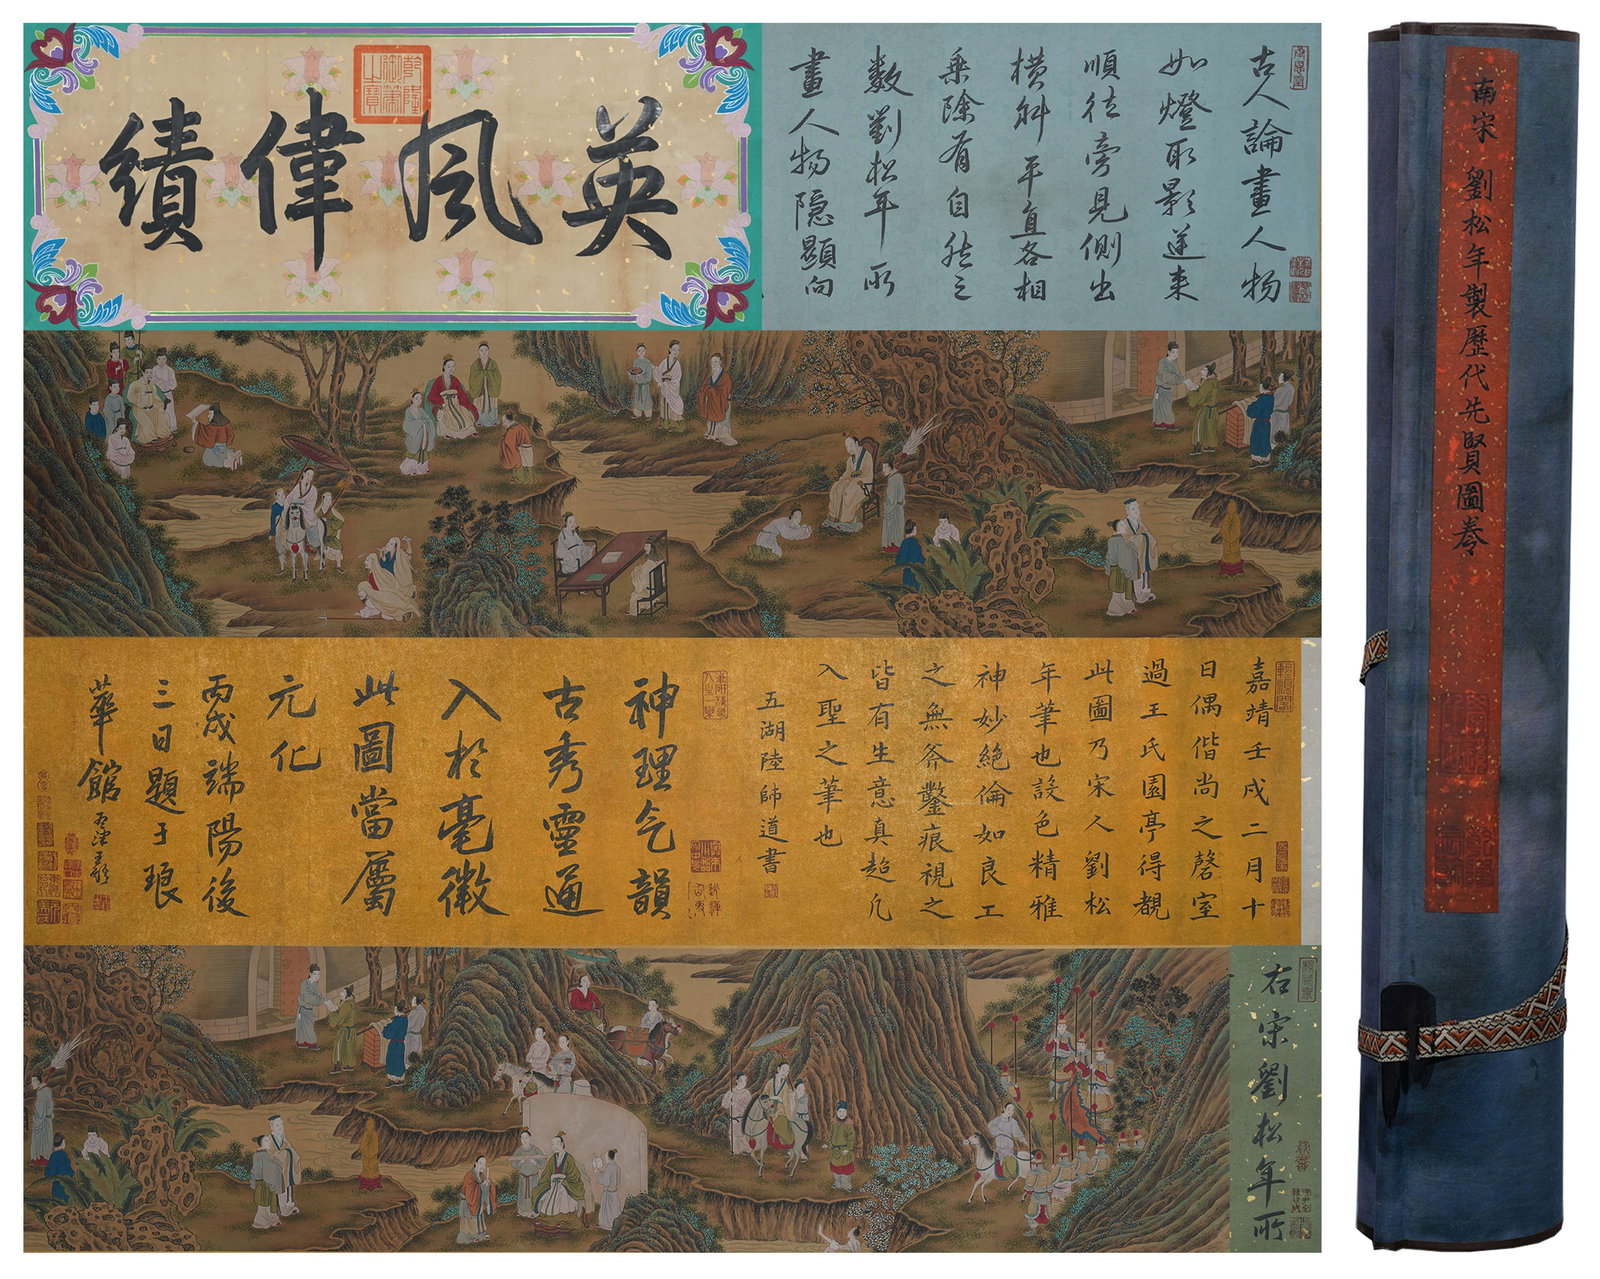 英風偉績
乾隆御筆之寶
古人論畫人物
如燈取影逆来
順往旁見側出
横斜平直各相
乗除有自然之
數劉松年所
畫人物隐顯向
嘉靖壬戌二月十
日偶偕尚之磬室
過王氏園亭得觀
此圖乃宋人劉松
年筆也設色精雅
神妙絶倫如良工
之無斧鑿痕視之
皆有生意真超凡
入聖之筆也
五湖陸師道書
神理氣韻
古秀靈通
入於毫徵
此圖當屬
元化
丙戌端陽後
三日題于琅
華館
右宋劉松年所
南宋 劉松年製歷代先賢圖卷